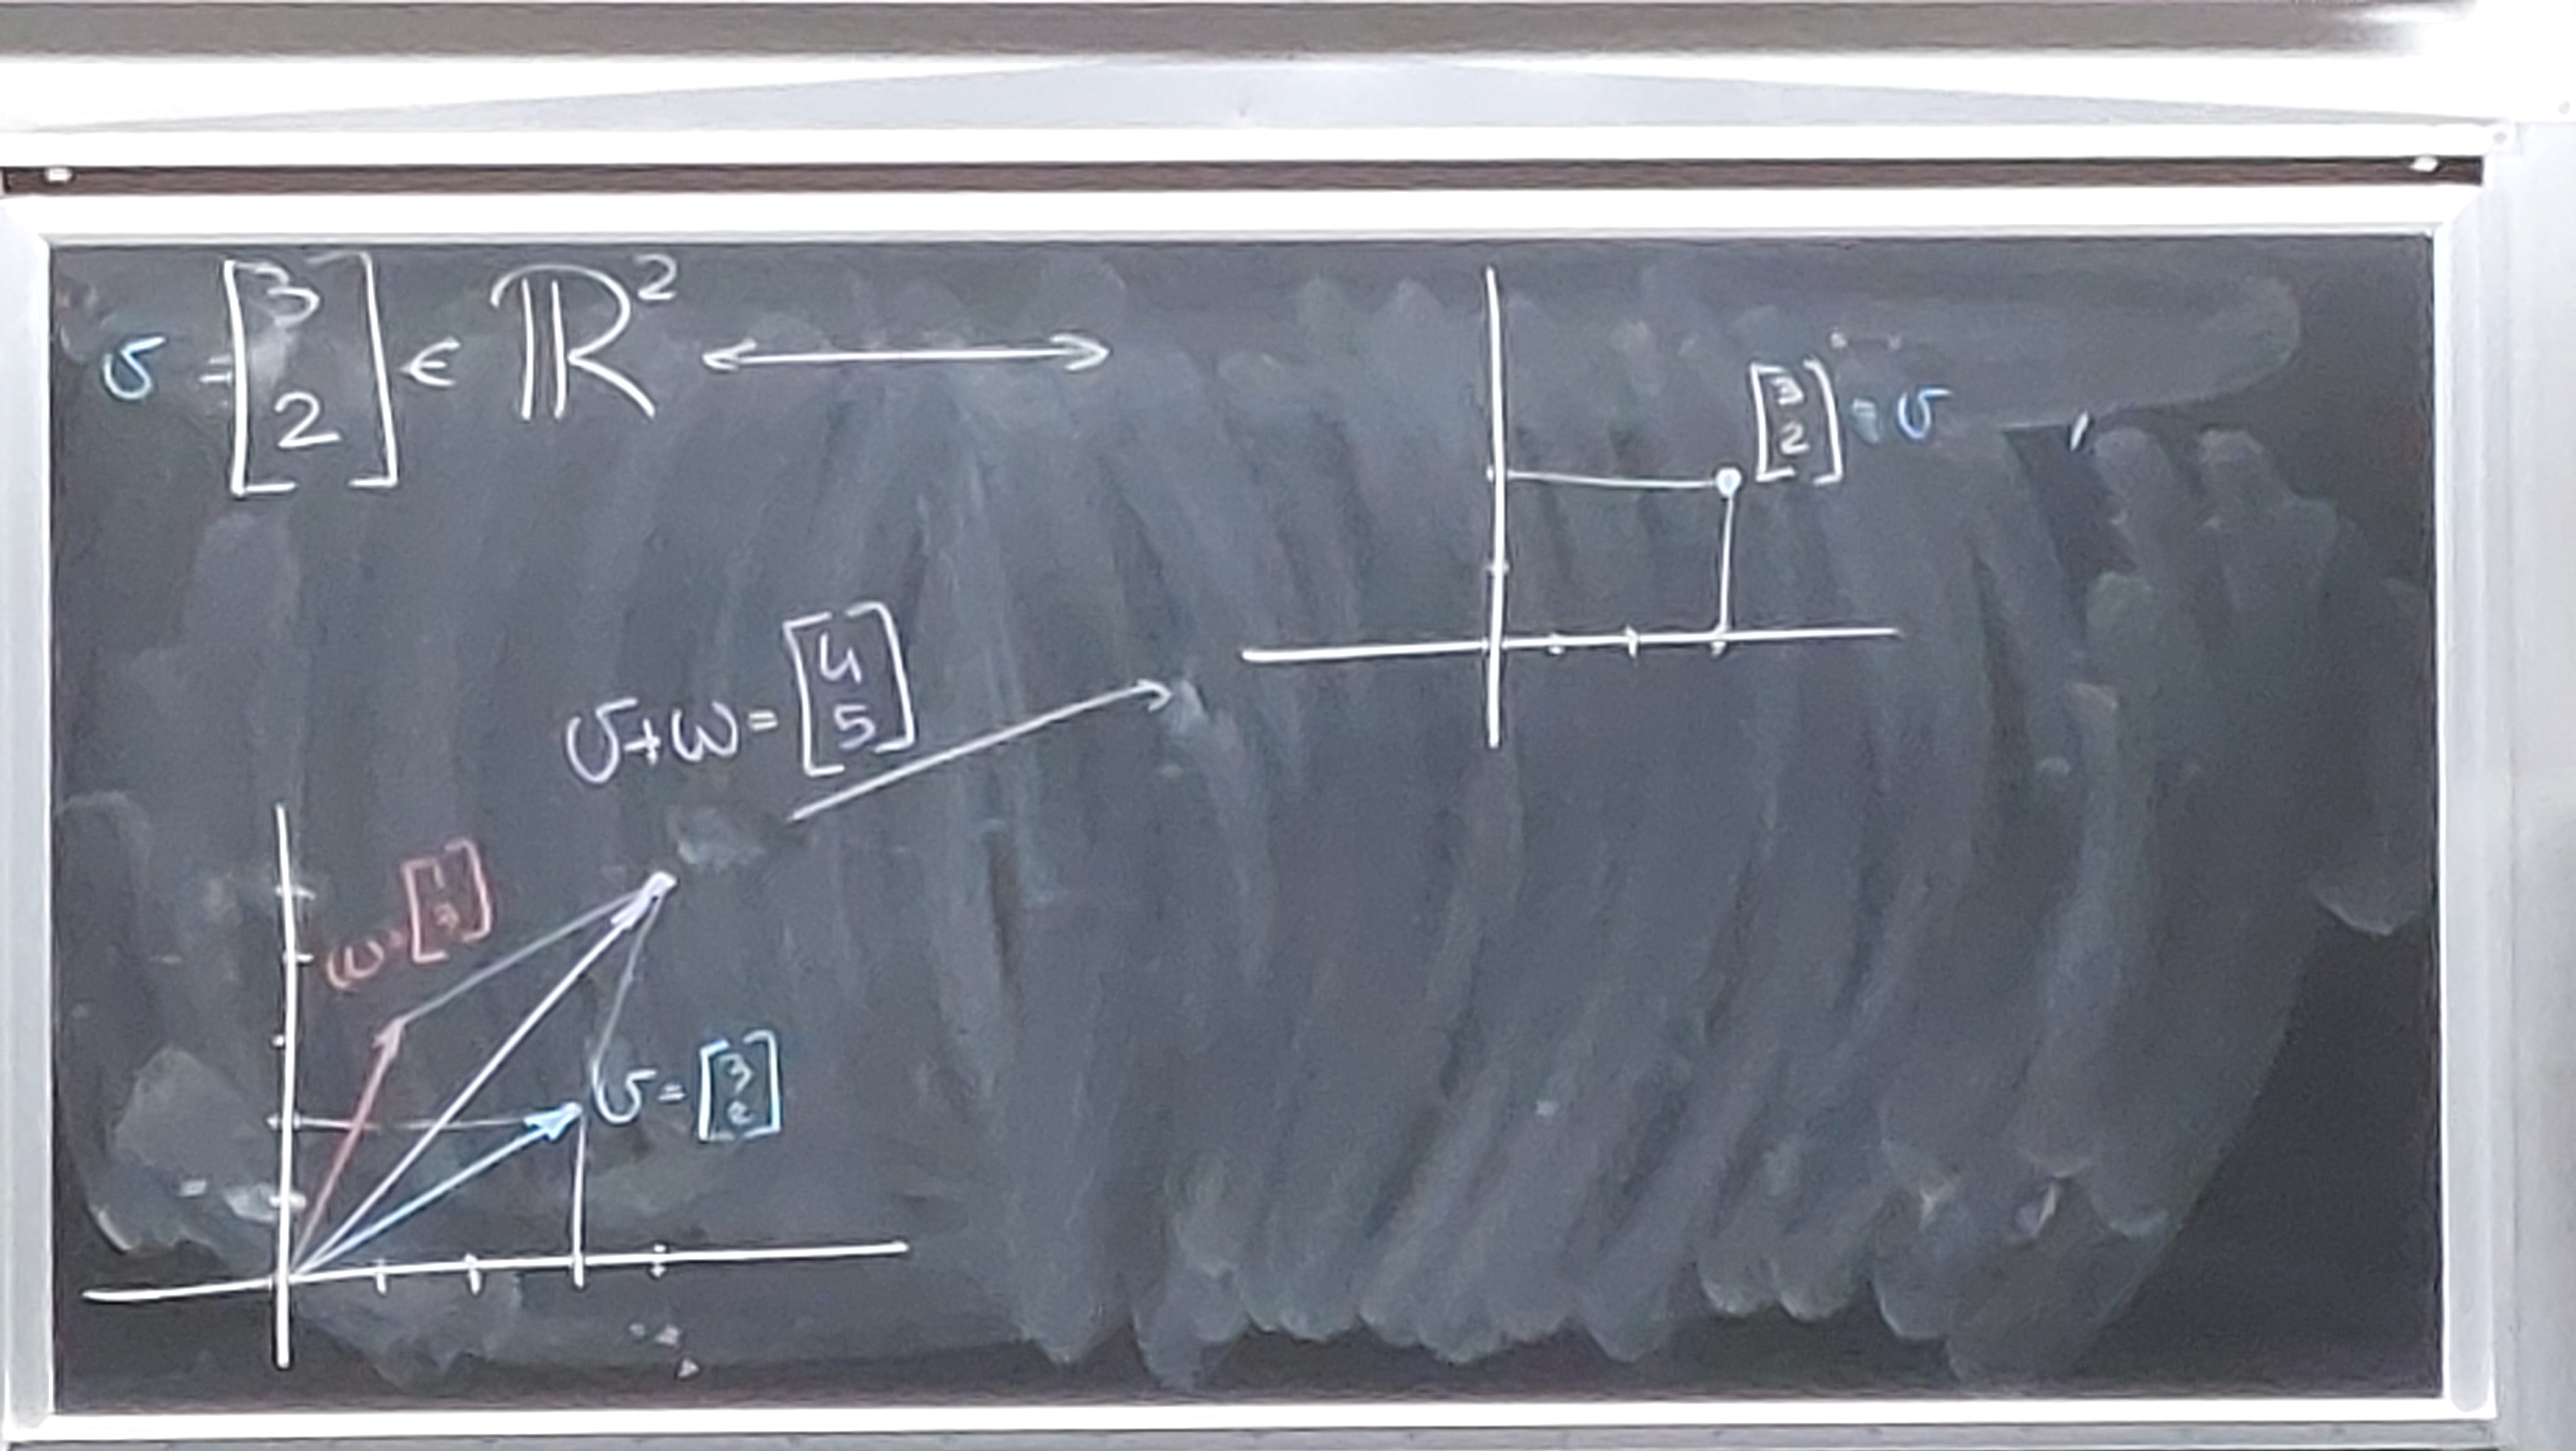 v = [3 2] ∈ ℝ²
[3 2] = v
v+w = [4 5]
w = [1 3]
v = [3 2]